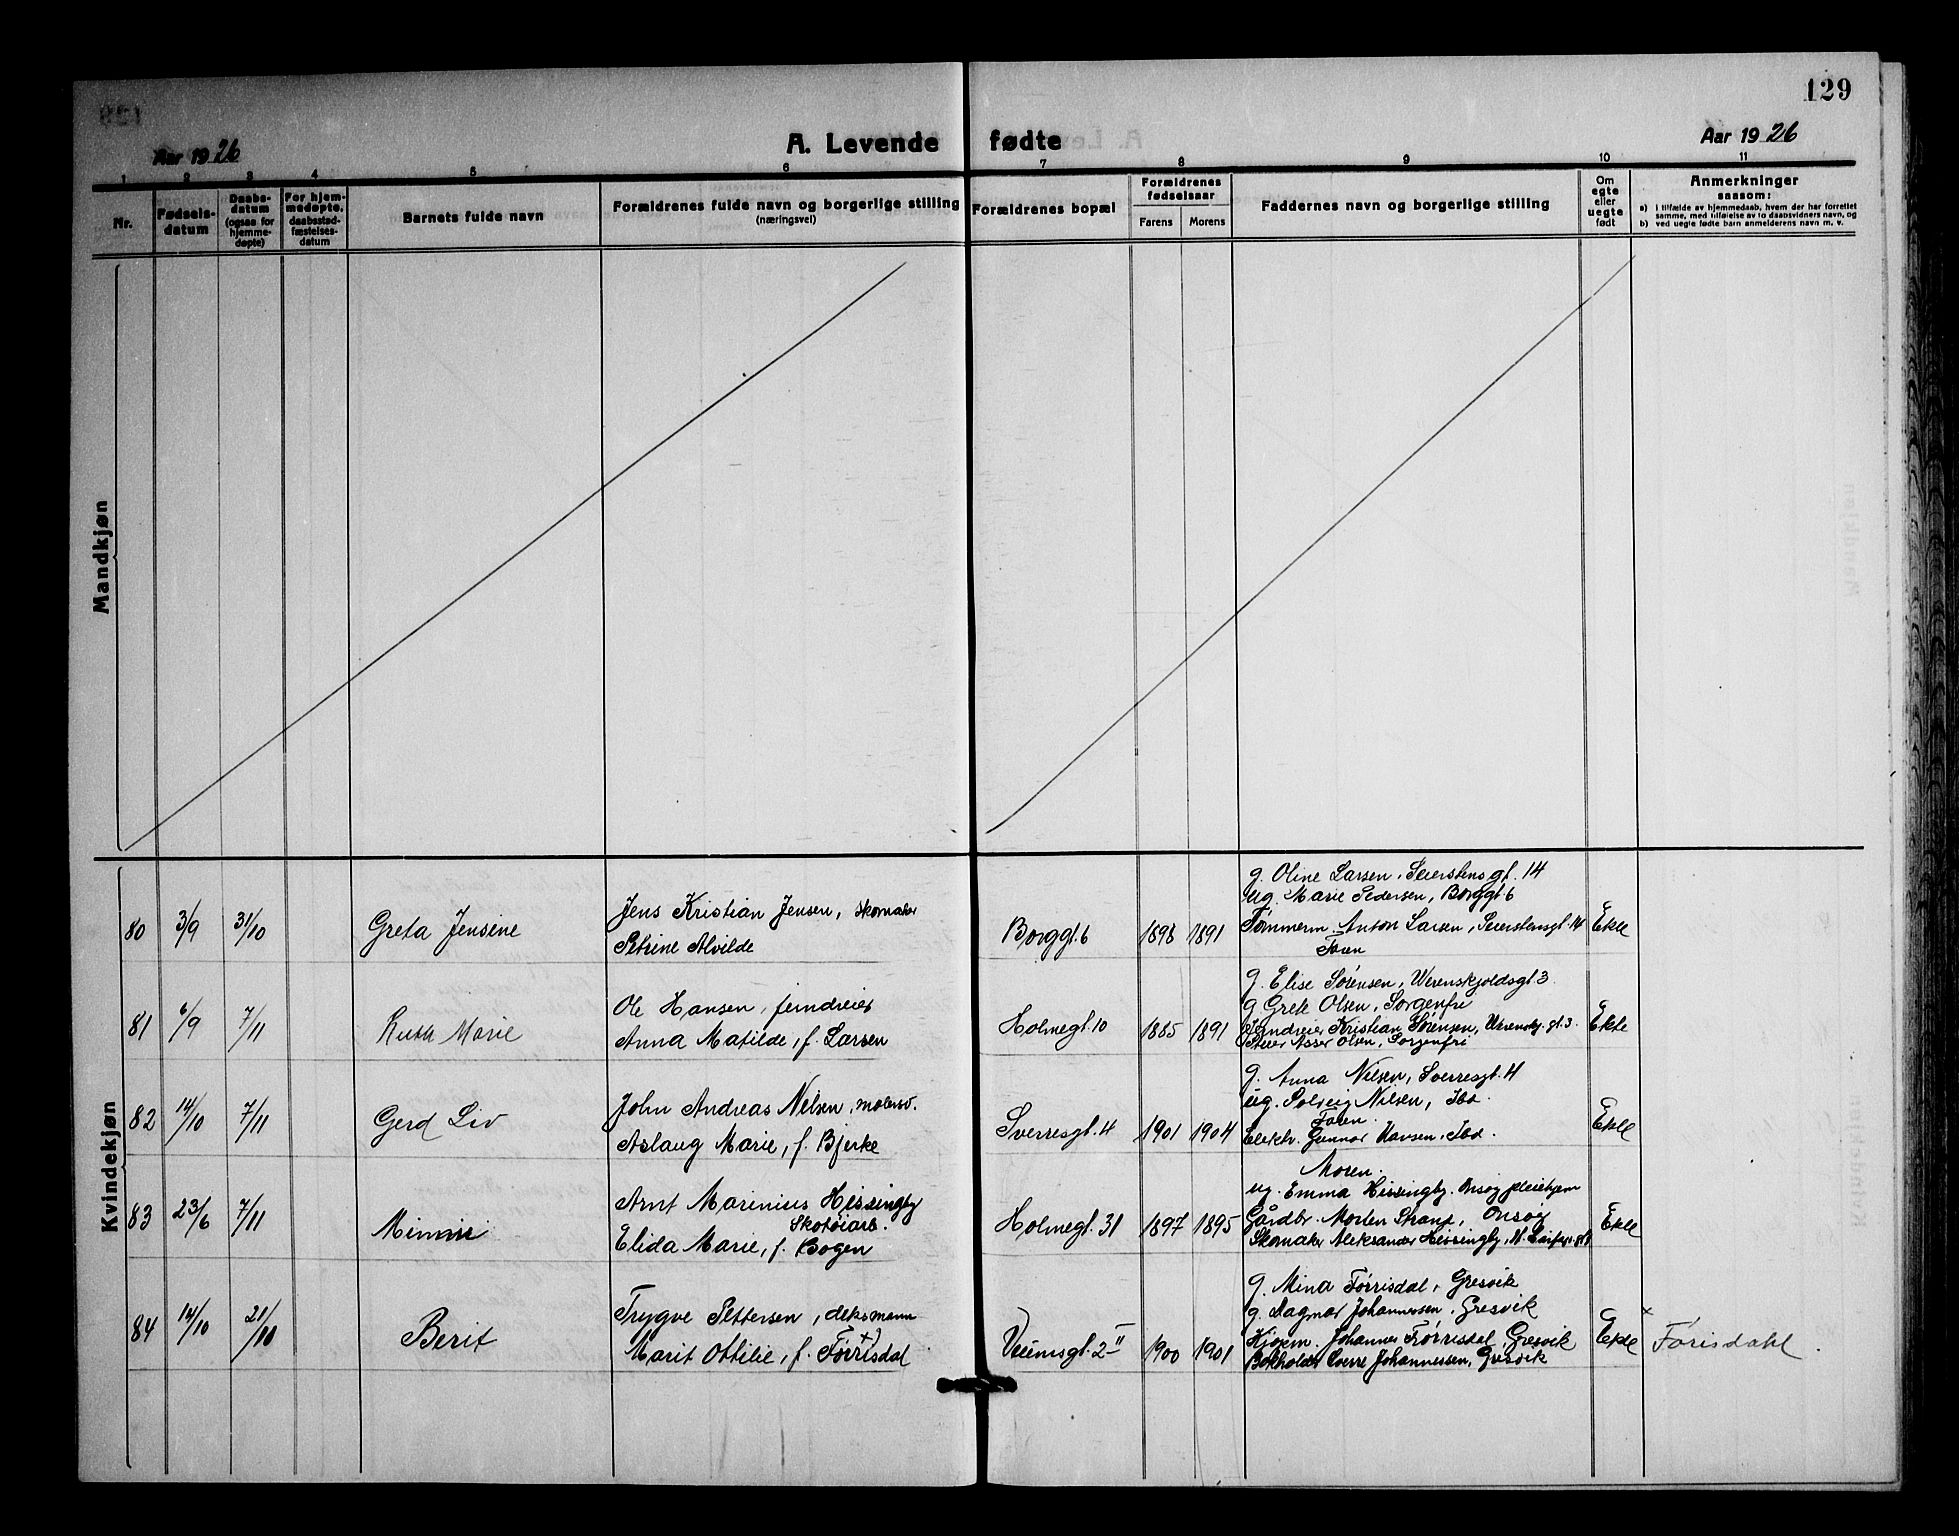 129
Aar 1926
A. Levende fødte
Aar 1926
1 2 3 4 5 6 7 8 9 10 11
Nr.
Fødsels-
datum
Daabs-
datum
(ogsaa for
hjemme-
døpte)
For hjem-
medøpte,
daabsstad-
fæstelses-
datum
Barnets fulde navn
Forældrenes fulde navn og borgerlige stilling
(næringsvei)
Forældrenes bopæl
Forældrenes
fødselsaar
Farens Morens
Faddernes navn og borgerlige stilling
Om
egte
eller
uegte
født
Anmerkninger
saasom:
a) i tilfælde av hjemmedaab, hvem der har forrettet
samme, med tilføielse av to daabsvidners navn, og
b) ved uegte fødte barn anmelderens navn m. v.
Mandkjøn
Kvindekjøn
80 3/9 31/10 Greta Jensine
Jens Kristian Jensen, Skomaker
Petrine Alvilde
Borggt. 6 1898 1891
g. Oline Larsen, Seierstensgt. 14
ug. Marie Pedersen, Borggt. 6
Tømmerm. Anton Larsen, Seierstensgt. 14
Faren
Ekte
81 6/9 7/11 Ruth Marie
Ole Hansen, jerndreier
Anna Matilde, f. Larsen
Holmegt. 10 1885 1891
g. Elise Sørensen, Werenskjoldsgt. 3
g Grete Olsen, Sorgenfri
Jerndreier Kristian Sørensen, Werenskj. gt. 3.
Asser Olsen, Sorgenfri
Ekte
82 14/10 7/11 Gerd Liv
John Andreas Nilsen, malersv.
Aslaug Marie, f. Bjerke
Sverresgt. 4 1901 1904
g. Anna Nilsen, Sverresgt. 4
ug. Solveig Nilsen, Ibd.
Faren.
Elektr. Gunnar Hansen, Ibd.
Ekte
83 23/6 7/11 Mimmi
Arnt Marinius Hissingby
Skotøiarb.
Elida Marie, f. Bogen
Holmegt. 31 1897 1895
Moren.
ug. Emma Hissingby, Onsøy pleiehjem
Gårdbr. Morten Strand, Onsøy
Skomaker Aleksander Hissingby,
Ekte
84 14/10 21/10 Berit
Trygve Pettersen, deksmann
Marit Ottilie, f. Førrisdal +)
Veumsgt. 2 II 1900 1901
g. Mina Førrisdal, Gresvik
g. Dagmar Johannessen, Gresvik
Kjøpm. Johannes Førrisdal, Gresvik
Bokholder Sverre Johannessen, Gresvik
Ekte
x Førisdahl.